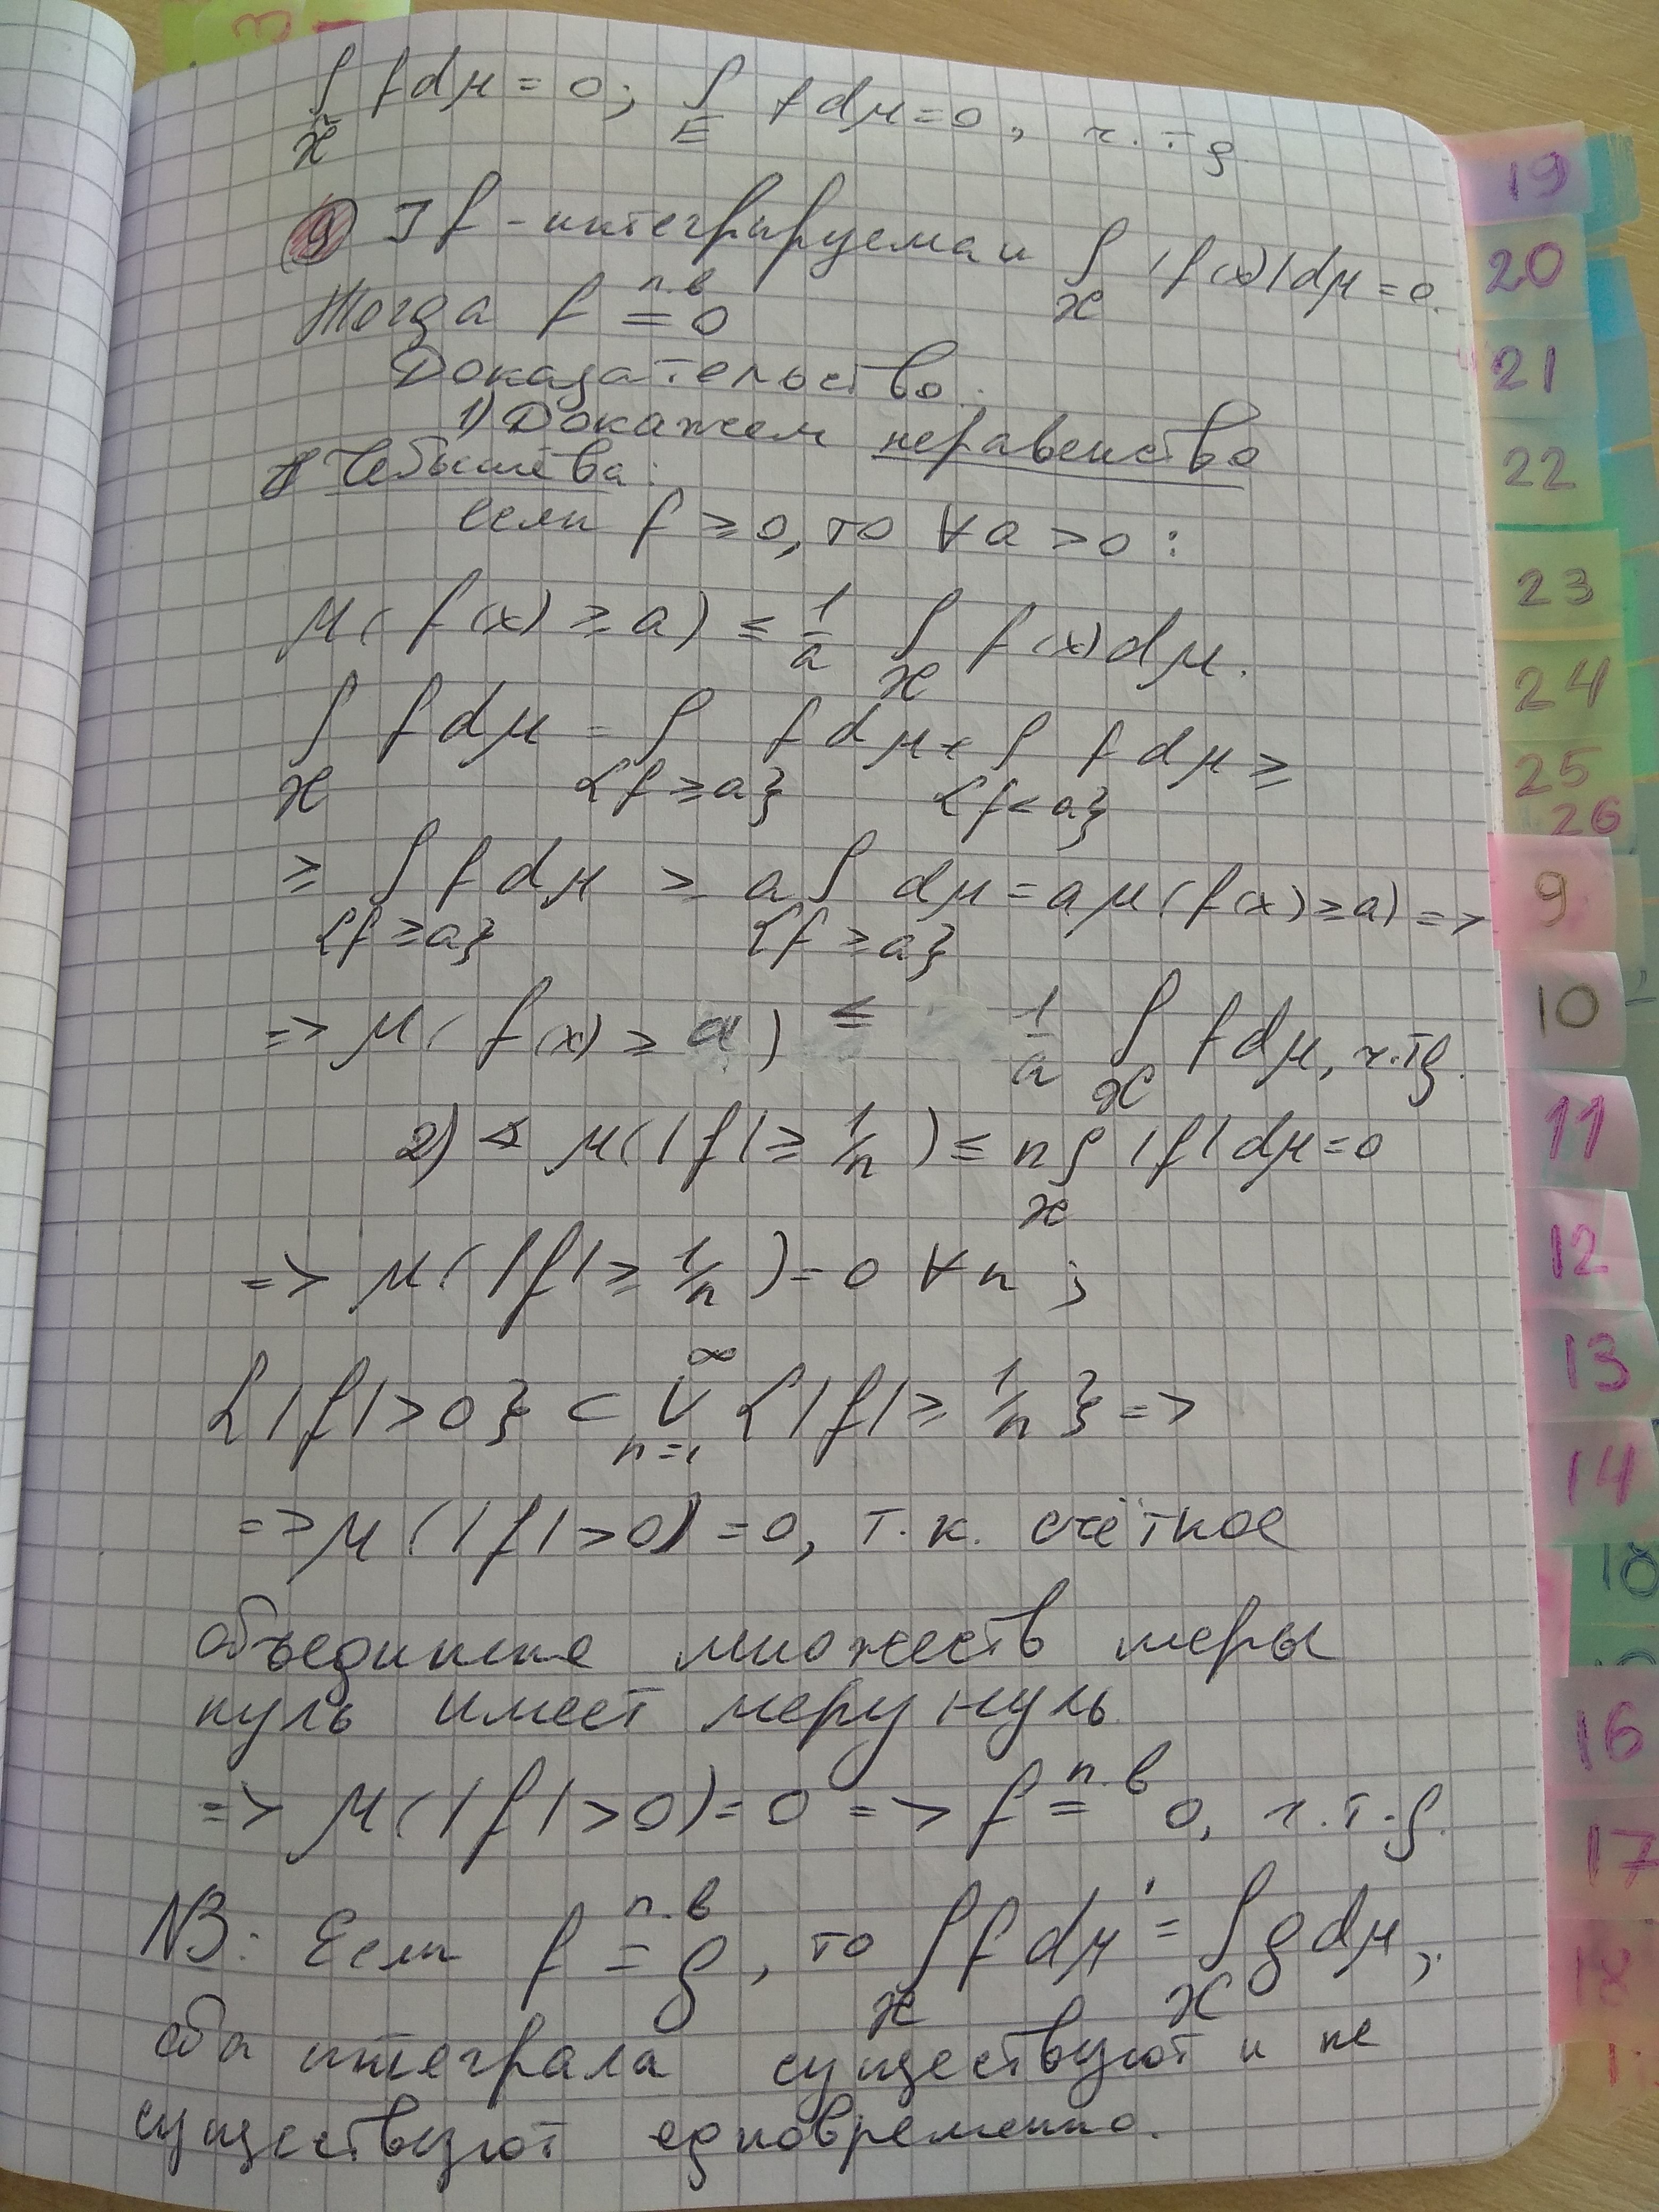 ∫ f dμ = 0; ∫ f dμ = 0, ч.тд
X E
9 ] f - интегрируема и ∫ |f(x)| dμ = 0.
X
Тогда f п.в = 0
Доказательство.
1) Докажем неравенство
Чебышёва:
если f ≥ 0, то ∀ a > 0 :
μ( f(x) ≥ a) ≤ 1/a ∫ f(x) dμ.
X
∫ f dμ = ∫ f dμ + ∫ f dμ ≥
X {f ≥ a} {f < a}
≥ ∫ f dμ ≥ a ∫ dμ = a μ( f(x) ≥ a) =>
{f ≥ a} {f ≥ a}
=> μ( f(x) ≥ a ) ≤ 1/a ∫ f dμ, ч.тд.
X
2) ∢ μ( |f| ≥ 1/n ) ≤ n ∫ |f| dμ = 0
X
=> μ( |f| ≥ 1/n ) = 0 ∀ n ;
{ |f| > 0 } ⊂ ∪ { |f| ≥ 1/n } =>
∞
n=1
=> μ ( |f| > 0) = 0, т.к. счётное
объединение множеств меры
нуль имеет меру нуль.
=> μ( |f| > 0) = 0 => f п.в = 0, ч.т.д.
NB: Если f п.в = g, то ∫ f dμ = ∫ g dμ,
X X
оба интеграла существуют и не
существуют одновременно.
19
20
21
22
23
24
25
26
9
10
11
12
13
14
18
16
17
18